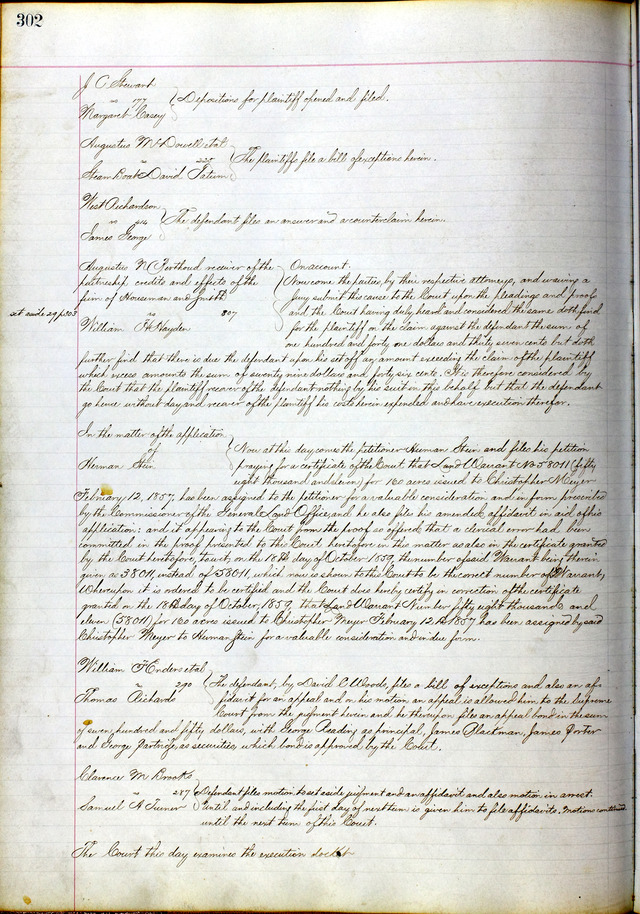 302
J. C. Stewart
vs 177 Depositions for plaintiff opened and filed.
Margaret Casey
Augustus McDowell et al
vs 225 The plaintiffs file a bill of exceptions herein.
Steam Boat David Tatum
West Richardson
vs The defendant files an answer and a counterclaim herein.
James George
Augustus N. Berthoud receiver of the On account.
partnership credits and effects of the Now come the parties by their respective attorneys, and waiving a
firm of Houseman and Smith jury submit this cause to the Court upon the pleadings and proofs
set aside 29 p 303 vs 807 and the Court having duly heard and considered the same doth find
William H. Hayden for the plaintiff on the claim against the defendant the sum of
one hundred and forty one dollars and thirty seven cents but doth
further find that there is due the defendant upon his set off an amount exceeding the claim of the plaintiff
which excess amounts the sum of seventy nine dollars and forty six cents. It is therefore considered by
the Court that the plaintiff recover of the defendant nothing by his suit in this behalf but that the defendant
go hence without day and recover of the plaintiff his costs herein expended and have execution therefor.
In the matter of the application
of Now at this day comes the petitioner Herman Stein and files his petition
Herman Stein praying for a certificate of the Court that Land Warrant No 58011 (fifty
eight thousand and eleven) for 160 acres issued to Christopher Meyer
February 12, 1857, has been assigned to the petitioner for a valuable consideration and in form prescribed
by the Commissioner of the General Land Office, and he also files his amended affidavit in aid of his
application: and it appearing to the Court from the proof so offered that a clerical error had been
committed in the proof presented to this Court heretofore in this matter as also in the certificate granted
by the Court heretofore, to wit, on the 18th day of October 1859, the number of said Warrant being therein
given as 38011, instead of 58011, which now is shown to this Court to be the correct number of Warrant,
Whereupon it is ordered to be certified and the Court does hereby certify in correction of the certificate
granted on the 18th day of October, 1859, that Land Warrant Number fifty eight thousand and
eleven (58011) for 160 acres issued to Christopher Meyer February 12th 1857 has been assigned by said
Christopher Meyer to Herman Stein for a valuable consideration and in due form.
William Enders et al
vs 290 The defendant, by David C. Woods, files a bill of exceptions and also an af-
Thomas Richards fidavit for an appeal and on his motion an appeal is allowed him to the Supreme
Court from the judgment herein and he thereupon files an appeal bond in the sum
of seven hundred and fifty dollars, with George Reading as principal, James Blackman, James Porter
and George Partridge, as securities, which bond is approved by the Court.
Clarence M. Brooks
vs 287 Defendant files motion to set aside judgment and an affidavit and also motion in arrest.
Samuel A. Turner Until and including the first day of next term is given him to file affidavits. Motions continued
until the next term of this Court.
The Court this day examines the execution docket